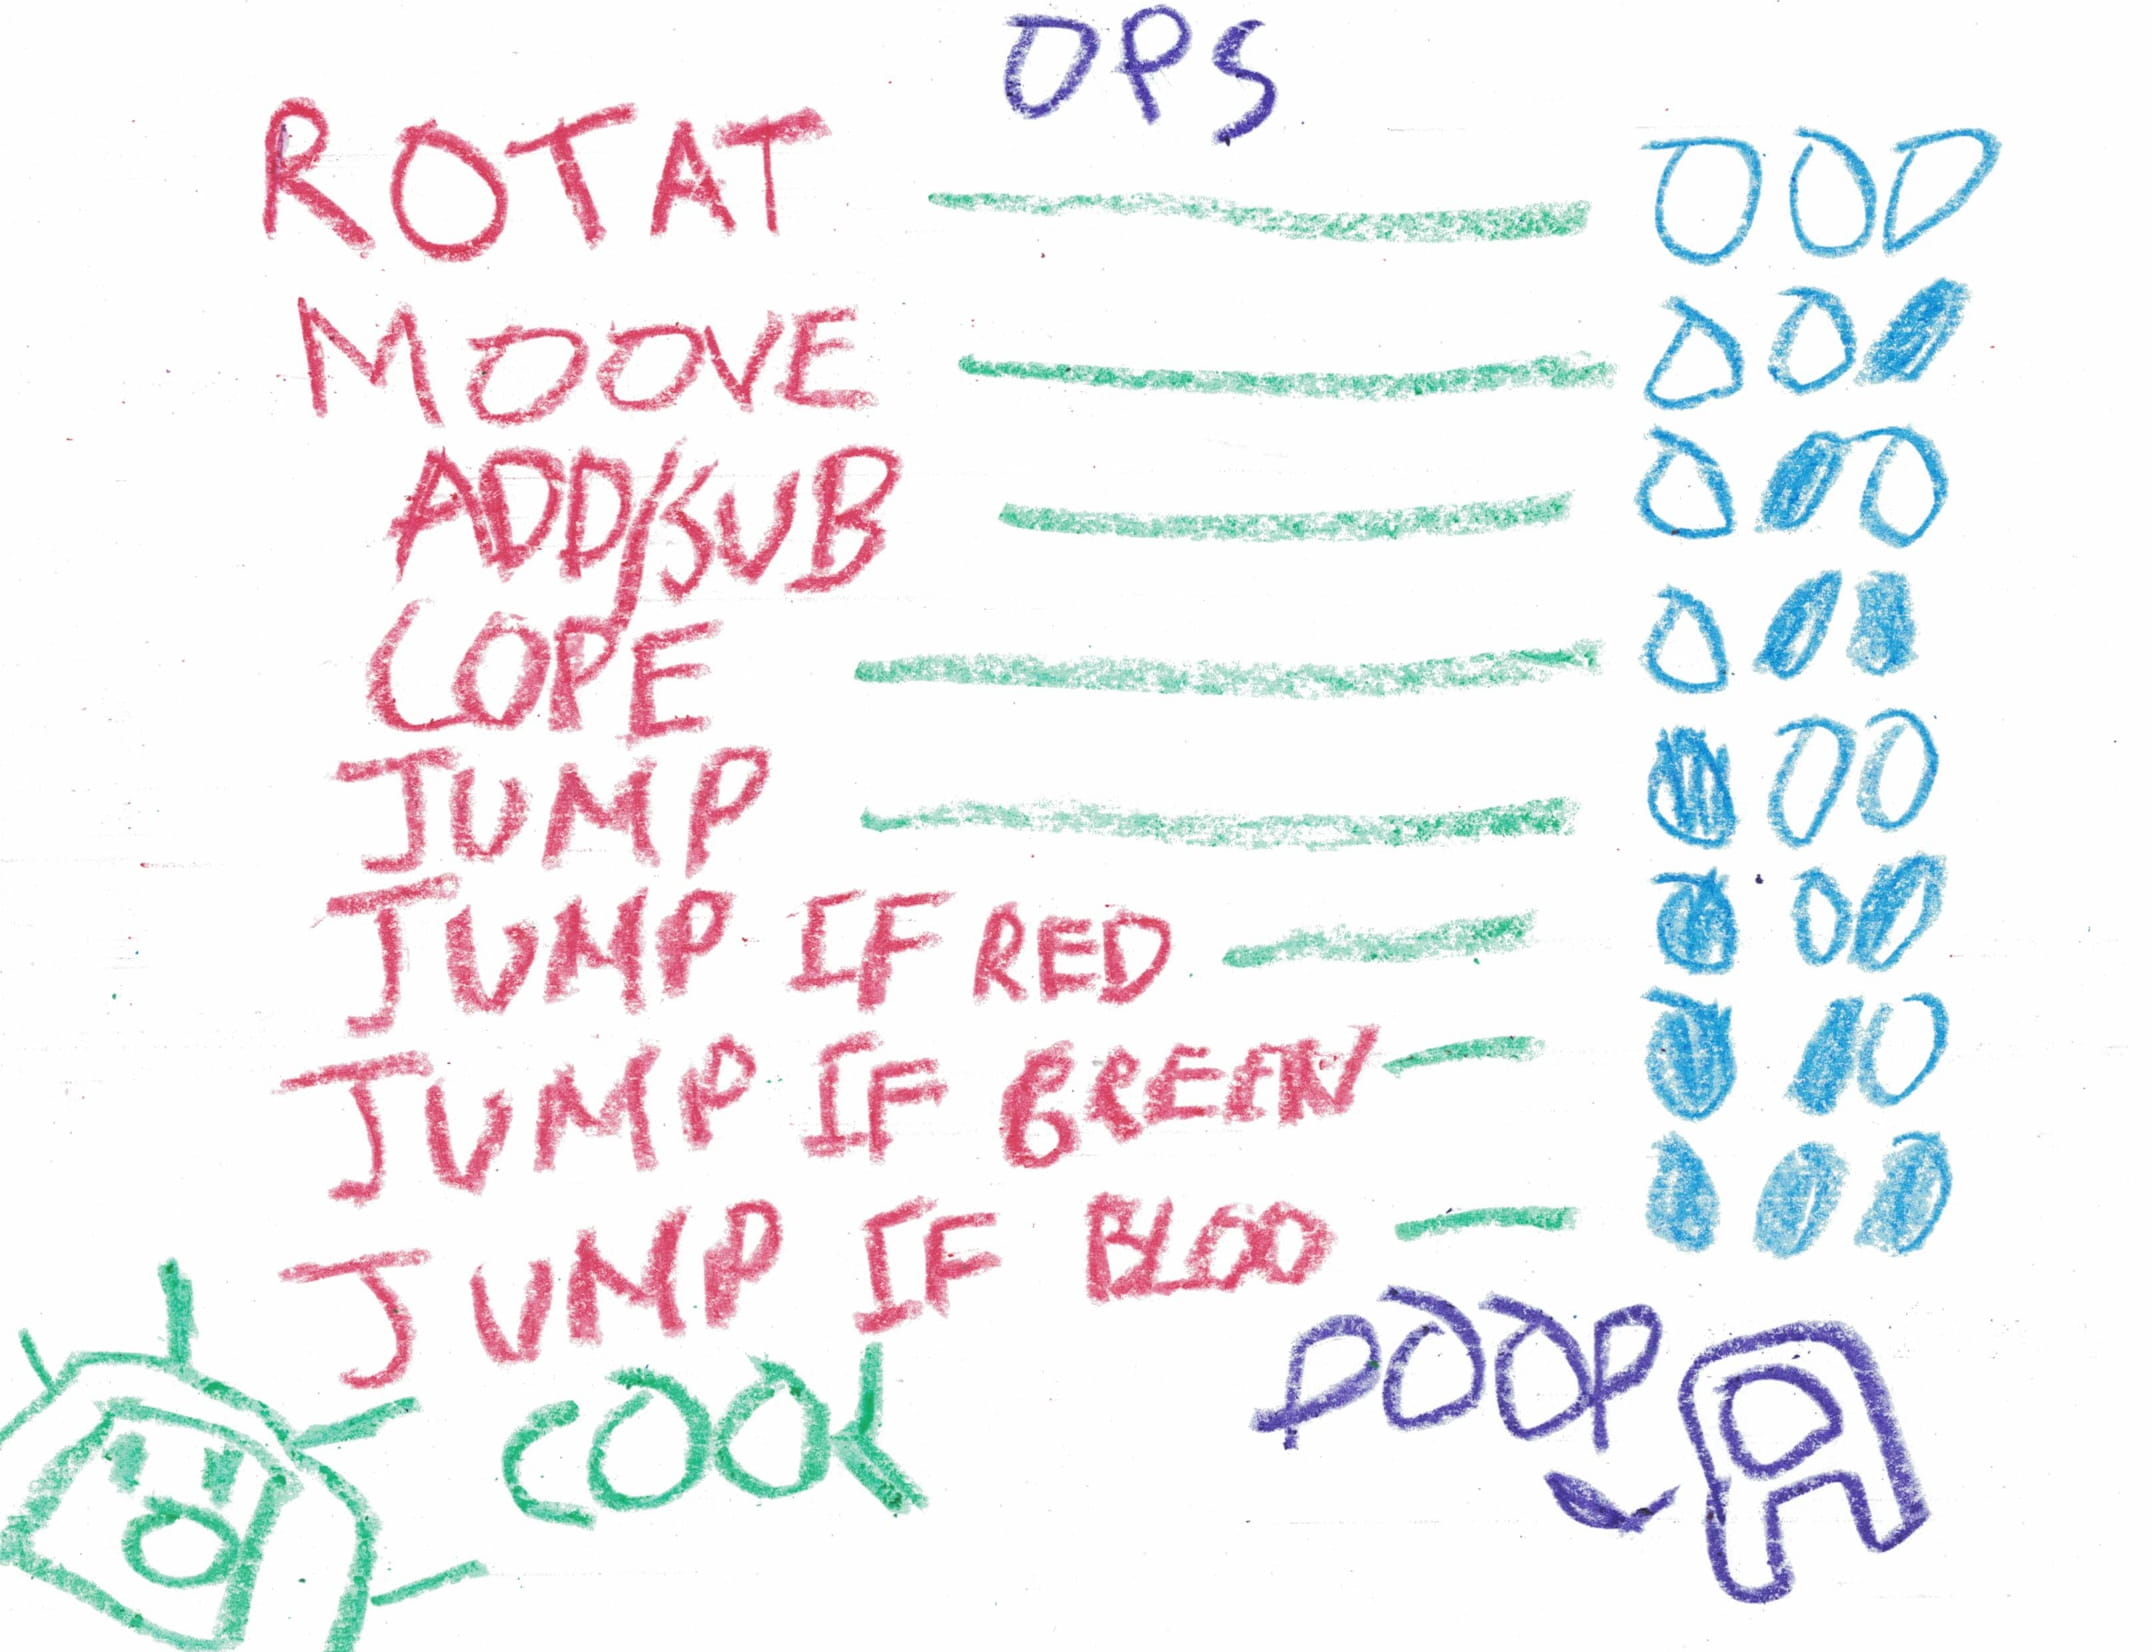 OPS
ROTAT
MOOVE
ADD/SUB
COPE
JUMP
JUMP IF RED
JUMP IF GREEN
JUMP IF BLOO
COOL
POOP